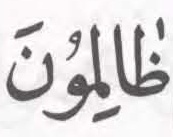 ظٰالِمُونَ